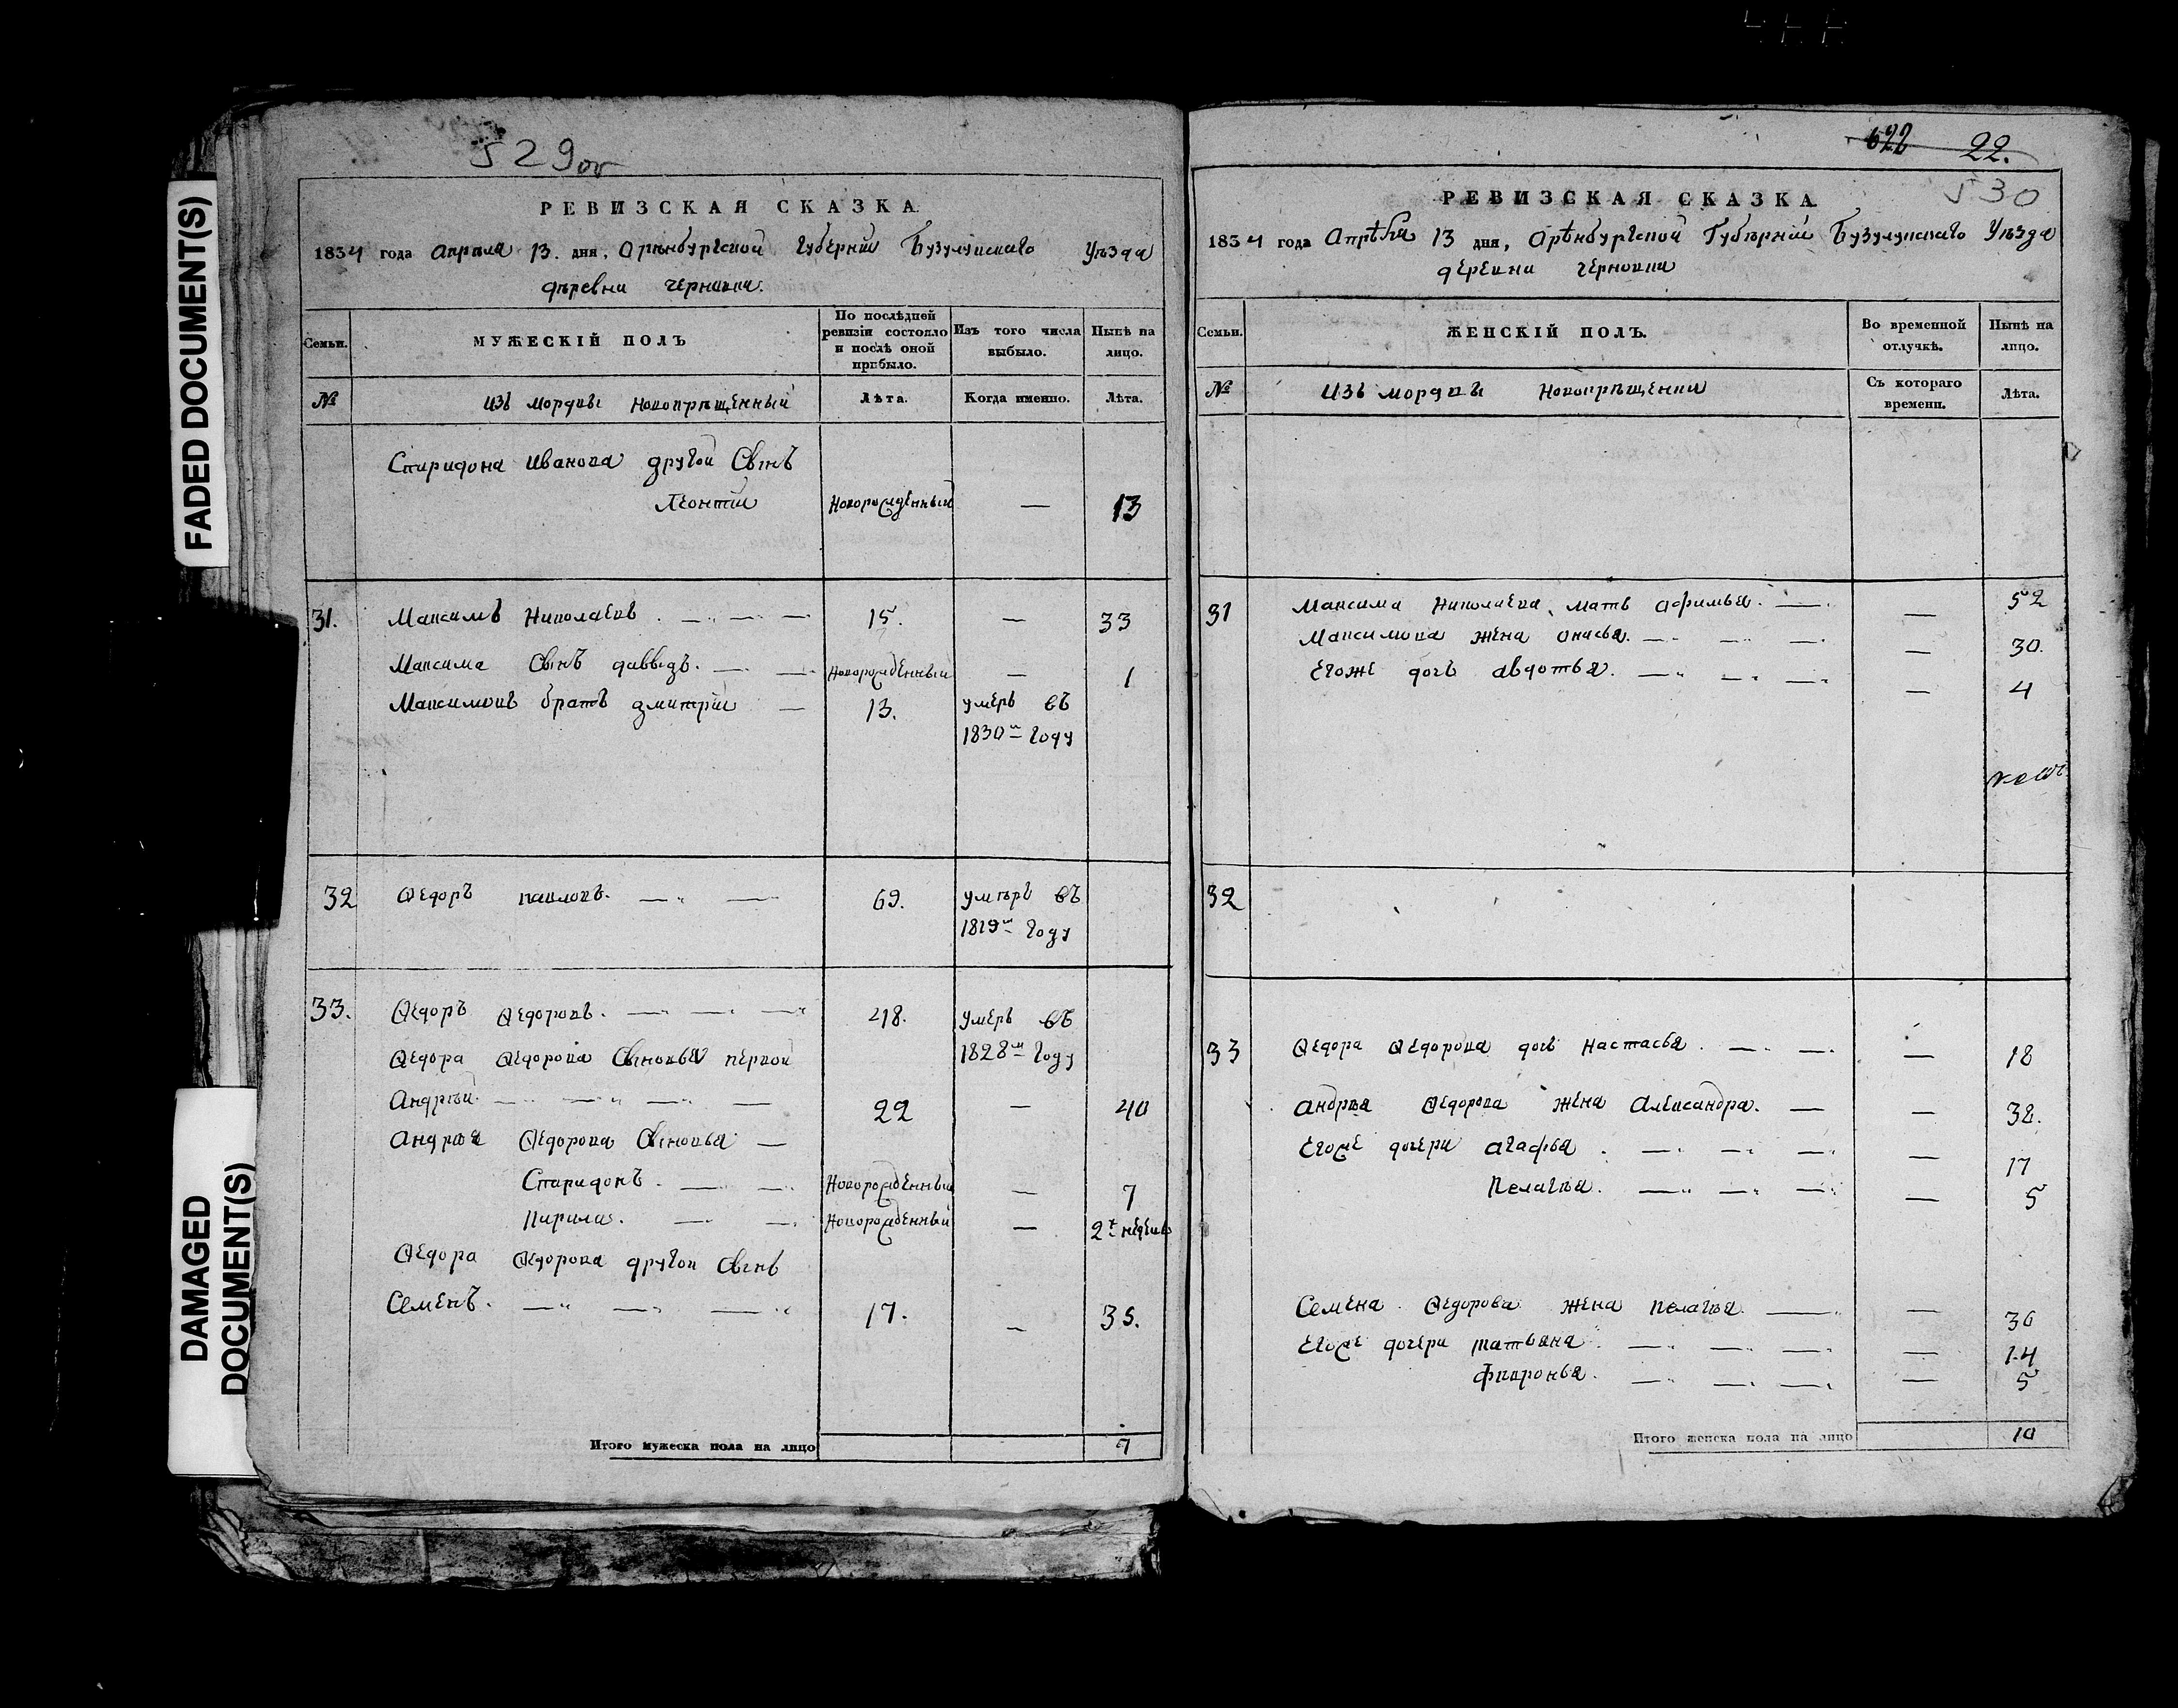 FADED DOCUMENT(S)
DAMAGED
DOCUMENT(S)
529об
РЕВИЗСКАЯ СКАЗКА.
1834 года Апреля 13. дня, Оренбургской Губернии Бузулукскаго Уезда
деревни черновки.
Семьи. МУЖЕСКІЙ ПОЛЪ По послѣдней ревизіи состояло и послѣ оной прибыло. Изъ того числа выбыло. Нынѣ на лицо.
№ Изъ мордвы Новокрещенный Лѣта. Когда именно. Лѣта.
Спиридона Иванова другой Сынъ
Леонтий Новорожденный — 13
31. Максимъ Николаевъ. — — — 15. — 33
Максима Сынъ даввыдъ. — — Новорожденный — 1
Максимовъ братъ дмитрий — 13. умеръ въ
1830м году
32 Ѳедоръ павловъ. — — 69. умеръ въ
1819м году
33. Ѳедоръ Ѳедоровъ. — — — 48. умеръ въ
Ѳедора Ѳедорова Сыновья первой 1828м году
Андрей. — — — — 22 — 40
Андрея Ѳедорова Сыновья —
Спиридонъ. — — Новорожденный — 7
Кирила. — — Новорожденный — 2т недель
Ѳедора Ѳедорова другой Сынъ
Семенъ. — — — 17. — 35.
Итого мужеска пола на лицо 7
622 22.
530
РЕВИЗСКАЯ СКАЗКА.
1834 года Апрѣля 13 дня, Орѣнбургской Губѣрнии Бузулукскаго Уезда
деревни черновки
Семьи. ЖЕНСКІЙ ПОЛЪ. Во временной отлучкѣ. Нынѣ на лицо.
№ Изъ мордвы Новокрещенки Съ котораго времени. Лѣта.
31 Максима Николаева мать афимья. — — 52
Максимова жена анисья. — — — — 30.
Егоже дочь авдотья. — — — — 4
32
33 Ѳедора Ѳедорова дочь настасья. — — — 18
андрея Ѳедорова жена Александра. — — 38.
Егоже дочери агафья. — — — — 17
Пелагея. — — — — 5
Семена Ѳедорова жена пелагея. — — 36
Егоже дочери татьяна. — — — — 14
Февронья. — — — — 5
Итого женска пола на лицо 10